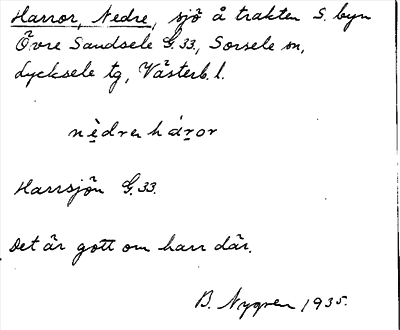 Harror, Nedre, sjö å trakten S. byn
Övre Sandsele G.33, Sorsele sn,
Lycksele tg, Västerb. l.
nèdrehár̥or
Harrsjön G.33.
Det är gott om harr där.
B. Nygren 1935.